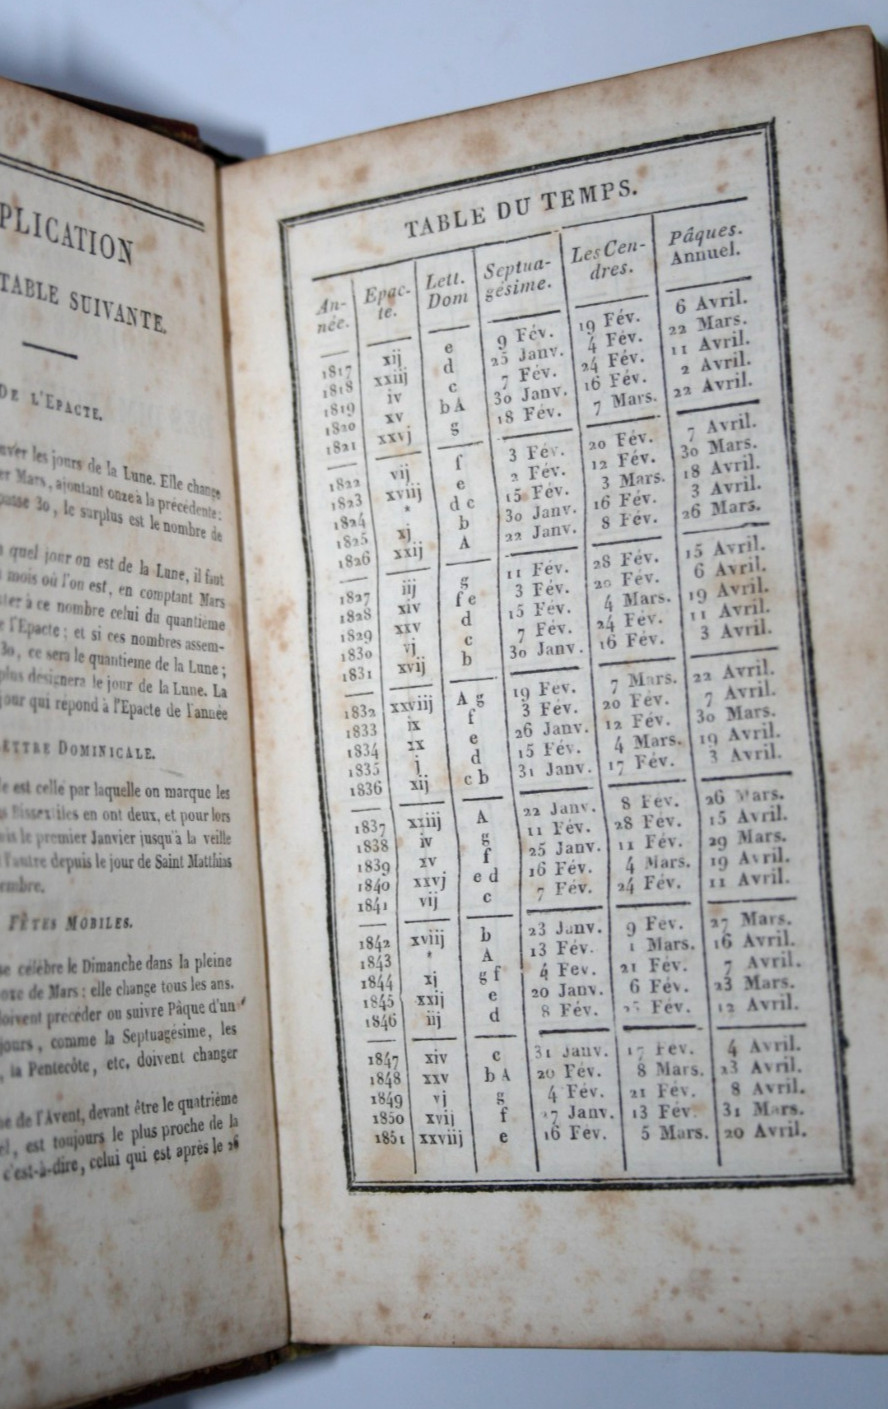 PLICATION
TABLE SUIVANTE.
DE L'EPACTE.
uver les jours de la Lune. Elle change
er Mars, ajoutant onze à la précédente:
passe 30, le surplus est le nombre de
quel jour on est de la Lune, il faut
mois où l'on est, en comptant Mars
ter à ce nombre celui du quantième
e l'Epacte; et si ces nombres assem-
30, ce sera le quantieme de la Lune;
plus designera le jour de la Lune. La
jour qui répond à l'Epacte de l'année
ETTRE DOMINICALE.
le est celle par laquelle on marque les
Bissextiles en ont deux, et pour lors
le premier Janvier jusqu'à la veille
l'autre depuis le jour de Saint Matthias
embre.
FÊTES MOBILES.
se célèbre le Dimanche dans la pleine
oxe de Mars: elle change tous les ans.
doivent précéder ou suivre Pâque d'un
jours, comme la Septuagésime, les
, la Pentecôte, etc. doivent changer
ne de l'Avent, devant être le quatrième
el, est toujours le plus proche de la
c'est-à-dire, celui qui est après le 26
TABLE DU TEMPS.
An-née. Epac-te. Lett. Dom Septua-gésime. Les Cen-dres. Pâques. Annuel.
1817 xij e 9 Fév. 19 Fév. 6 Avril.
1818 xxiij d 25 Janv. 4 Fév. 22 Mars.
1819 iv c 7 Fév. 24 Fév. 11 Avril.
1820 xv b A 30 Janv. 16 Fév. 2 Avril.
1821 xxvj g 18 Fév. 7 Mars. 22 Avril.
1822 vij f 3 Fév. 20 Fév. 7 Avril.
1823 xviij e 2 Fév. 12 Fév. 30 Mars.
1824 * d c 15 Fév. 3 Mars. 18 Avril.
1825 xj b 30 Janv. 16 Fév. 3 Avril.
1826 xxij A 22 Janv. 8 Fév. 26 Mars.
1827 iij g 11 Fév. 28 Fév. 15 Avril.
1828 xiv f e 3 Fév. 20 Fév. 6 Avril.
1829 xxv d 15 Fév. 4 Mars. 19 Avril.
1830 vj c 7 Fév. 24 Fév. 11 Avril.
1831 xvij b 30 Janv. 16 Fév. 3 Avril.
1832 xxviij A g 19 Fev. 7 Mars. 22 Avril.
1833 ix f 3 Fév. 20 Fév. 7 Avril.
1834 xx e 26 Janv. 12 Fév. 30 Mars.
1835 j d 15 Fév. 4 Mars. 19 Avril.
1836 xij c b 31 Janv. 17 Fév. 3 Avril.
1837 xxiij A 22 Janv. 8 Fév. 26 Mars.
1838 iv g 11 Fév. 28 Fév. 15 Avril.
1839 xv f 25 Janv. 11 Fév. 29 Mars.
1840 xxvj e d 16 Fév. 4 Mars. 19 Avril.
1841 vij c 7 Fév. 24 Fév. 11 Avril.
1842 xviij b 23 Janv. 9 Fév. 27 Mars.
1843 * A 13 Fév. 1 Mars. 16 Avril.
1844 xj g f 4 Fev. 21 Fév. 7 Avril.
1845 xxij e 20 Janv. 6 Fév. 23 Mars.
1846 iij d 8 Fév. Fév. 12 Avril.
1847 xiv c 31 Janv. 17 Fev. 4 Avril.
1848 xxv b A 20 Fév. 8 Mars. 23 Avril.
1849 vj g 4 Fév. 21 Fév. 8 Avril.
1850 xvij f 27 Janv. 13 Fév. 31 Mars.
1851 xxviij e 16 Fév. 5 Mars. 20 Avril.